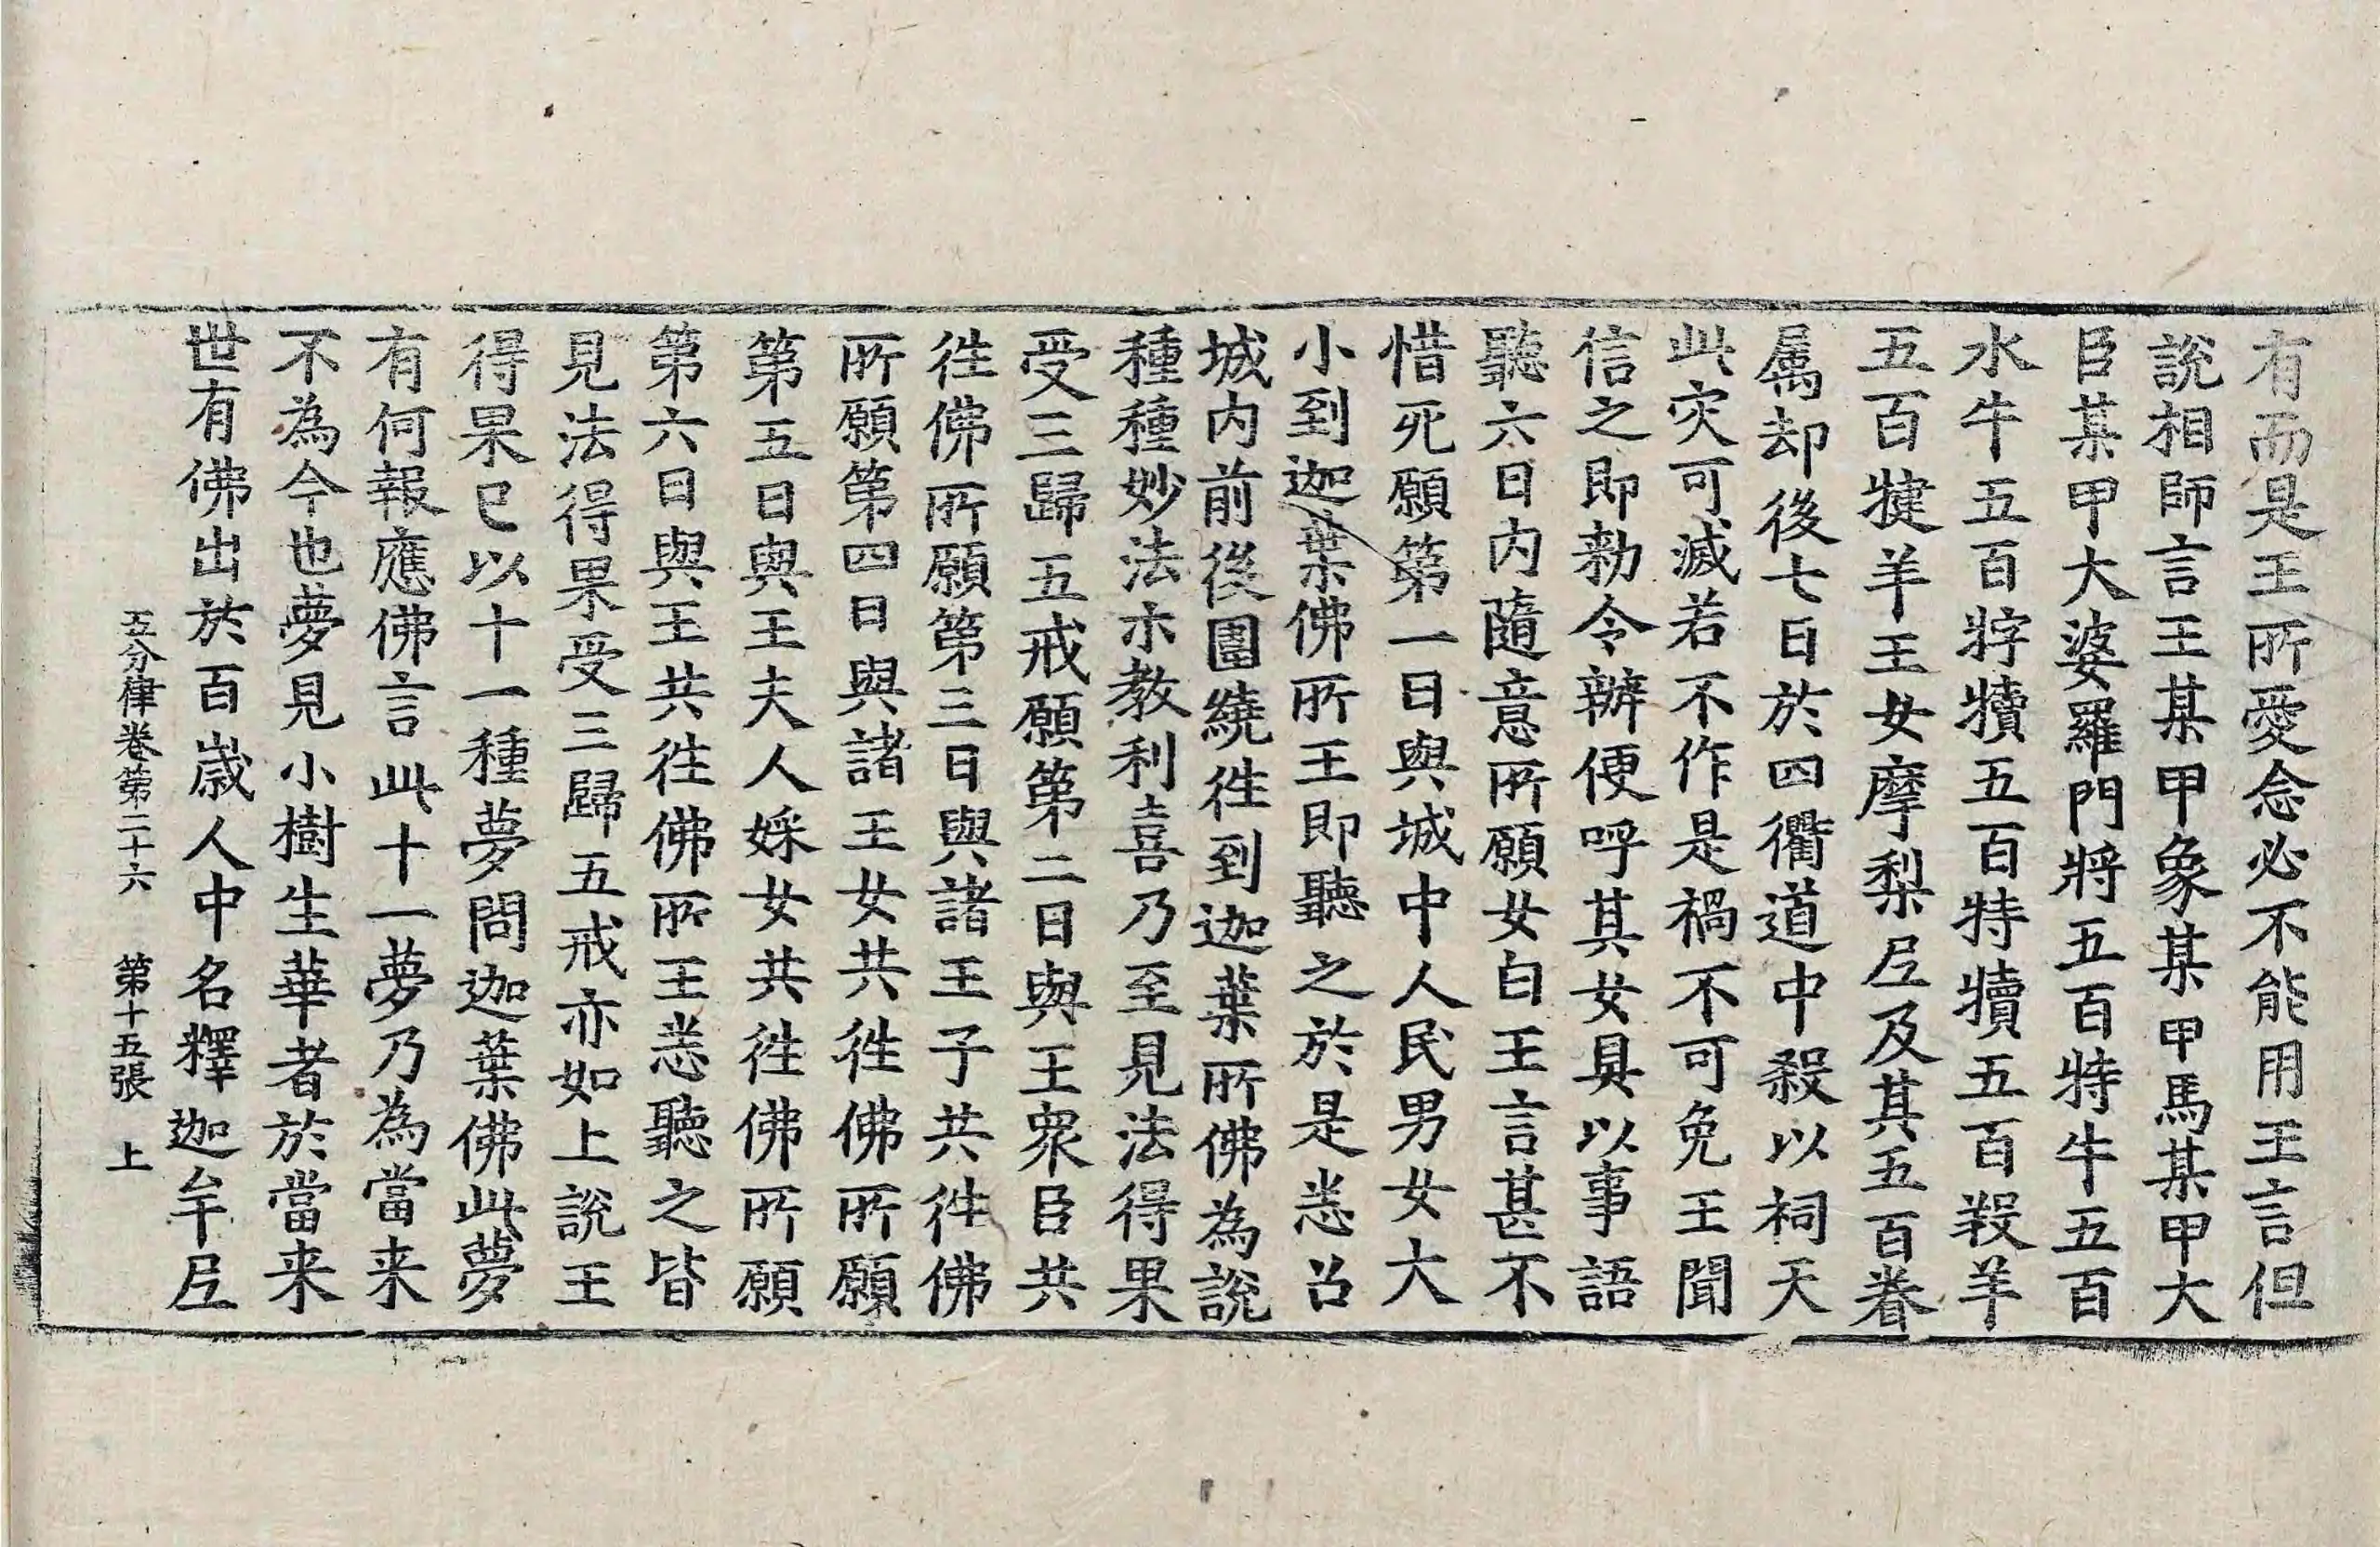 有而是王所愛念必不能用王言但
說相師言王某甲象某甲馬某甲大
臣某甲大婆羅門將五百特牛五百
水牛五百牸犢五百特犢五百羖羊
五百犍羊王女摩梨尼及其五百眷
属却後七日於四衢道中殺以祠天
此灾可滅若不作是禍不可免王聞
信之即勑令辦便呼其女具以事語
聽六日內隨意所願女白王言甚不
惜死願第一日與城中人民男女大
小到迦葉佛所王即聽之於是恙召
城內前後圍繞徃到迦葉所佛為說
種種妙法示教利喜乃至見法得果
受三歸五戒願第二日與王衆臣共
徃佛所願第三日與諸王子共徃佛
所願第四日與諸王女共徃佛所願
第五日與王夫人婇女共徃佛所願
第六日與王共徃佛所王恙聽之皆
見法得果受三歸五戒亦如上說王
得果已以十一種夢問迦葉佛此夢
有何報應佛言此十一夢乃為當来
不為今也夢見小樹生華者於當来
世有佛出於百歲人中名釋迦牟尼
五分律卷第二十六 第十五張 上